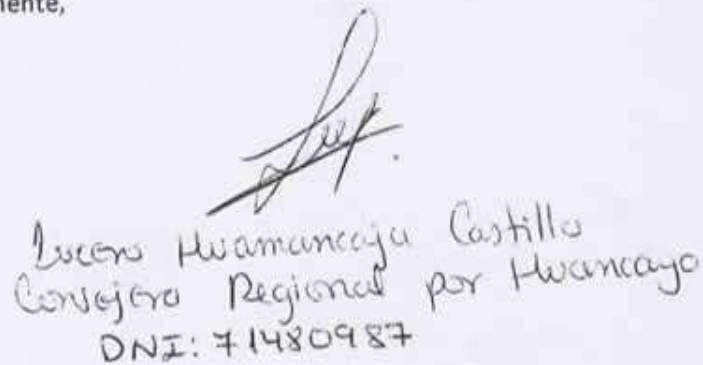 mente,
Lucero Huamancaja Castillo
Consejera Regional por Huancayo
DNI: 71480987